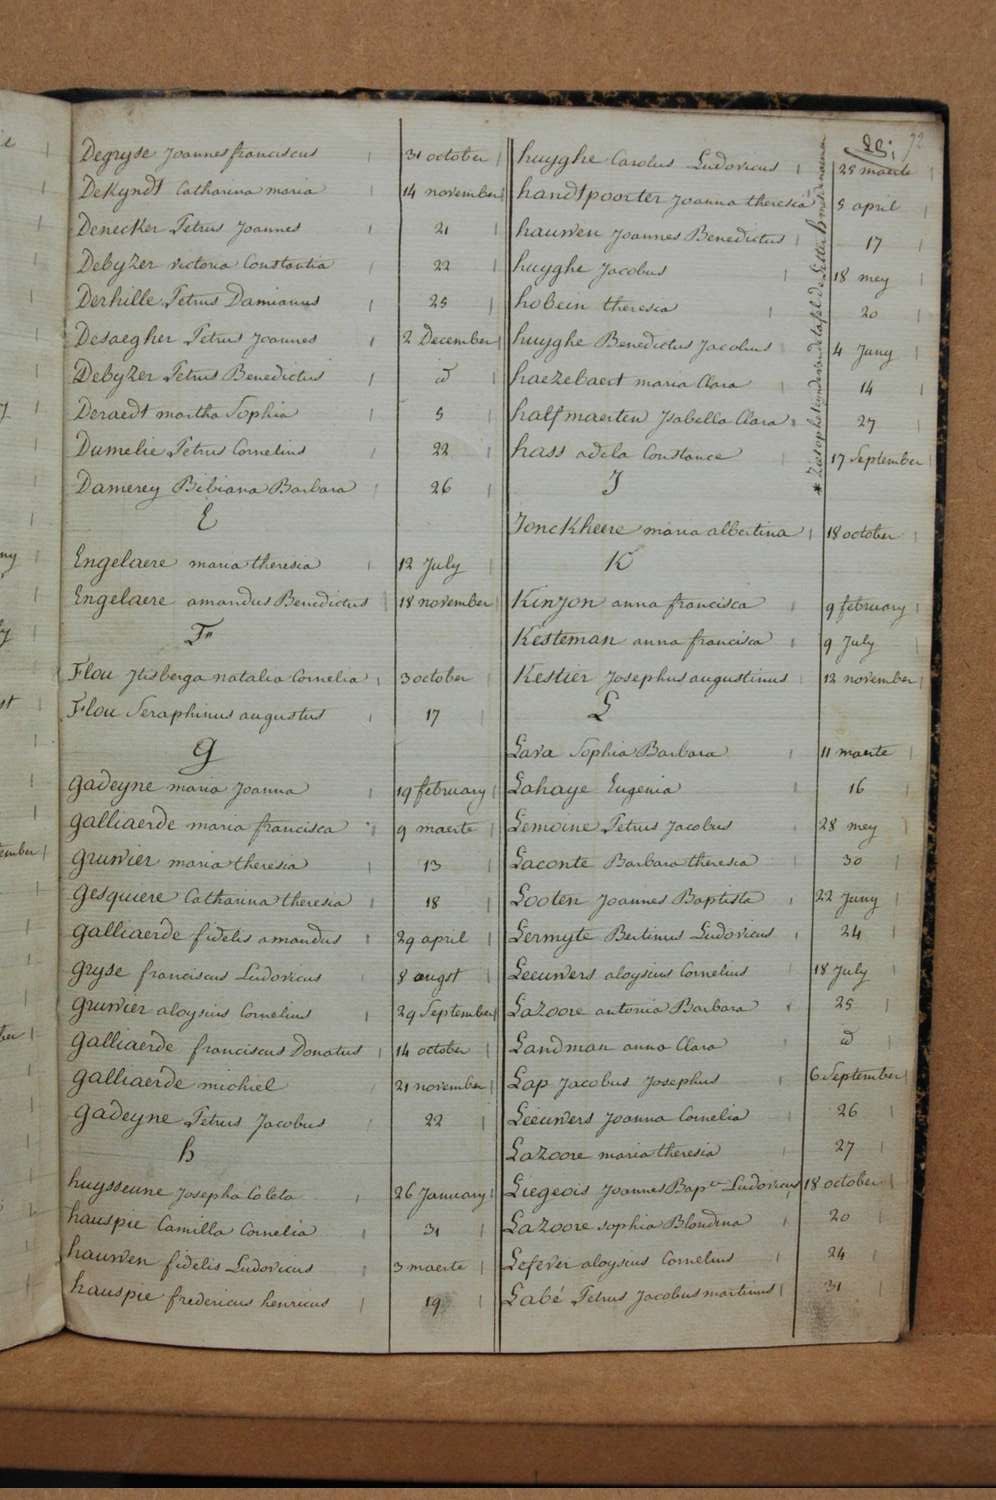 Degryse Joannes franciscus 31 october
DeKyndt Catharina maria 14 november
Denecker Petrus Joannes 21
Debyzer victoria Constantia 22
Derhille Petrus Damianus 25
Desaegher Petrus Joannes 2 December
Debyzer Petrus Benedictus id
Deraedt martha Sophia 5
Dumelie Petrus Cornelius 22
Damerey Bibiana Barbara 26
E
Engelaere maria theresia 12 July
Engelaere amandus Benedictus 18 november
F
Flou Itisberga natalia Cornelia 3 october
Flou Seraphinus augustus 17
g
gadeyne maria Joanna 19 february
galliaerde maria francisca 9 maerte
gruwier maria theresia 13
gesquiere Catharina theresia 18
galliaerde fidelis amandus 29 april
gryse franciscus Ludovicus 8 augst
gruwier aloysius Cornelius 29 September
galliaerde franciscus Donatus 14 october
galliaerde michiel 21 november
gadeyne Petrus Jacobus 22
h
huysseune Josepha Coleta 26 January
hauspie Camilla Cornelia 31
hauwen fidelis Ludovicus 3 maerte
hauspie fredericus henricus 19
72
huyghe Carolus Ludovicus 25 maerte
handtpoorter Joanna theresia 5 april
hauwen Joannes Benedictus 17
huyghe Jacobus 18 mey
hobein theresia 20
huyghe Benedictus Jacobus 4 Juny
haezebaert maria Clara 14
halfmaerten Isabella Clara 27
hass adela Constance 17 September
J
Jonckheere maria albertina 18 october
K
Kinjon anna francisca 9 february
Kesteman anna francisca 9 July
Kestier Josephus augustinus 12 november
L
Lava Sophia Barbara 11 maerte
Lahaye Eugenia 16
Lemoine Petrus Jacobus 28 mey
Laconte Barbara theresia 30
Looten Joannes Baptista 22 Juny
Lermyte Bertinus Ludovicus 24
Leeuwers aloysius Cornelius 18 July
Lazoore antonia Barbara 25
Landman anna Clara id
Lap Jacobus Josephus 6 September
Leeuwers Joanna Cornelia 26
Lazoore maria theresia 27
Liegeois Joannes Bapte Ludovicus 18 october
Lazoore sophia Blondina 20
Lefever aloysius Cornelius 24
Labé Petrus Jacobus martinus 31